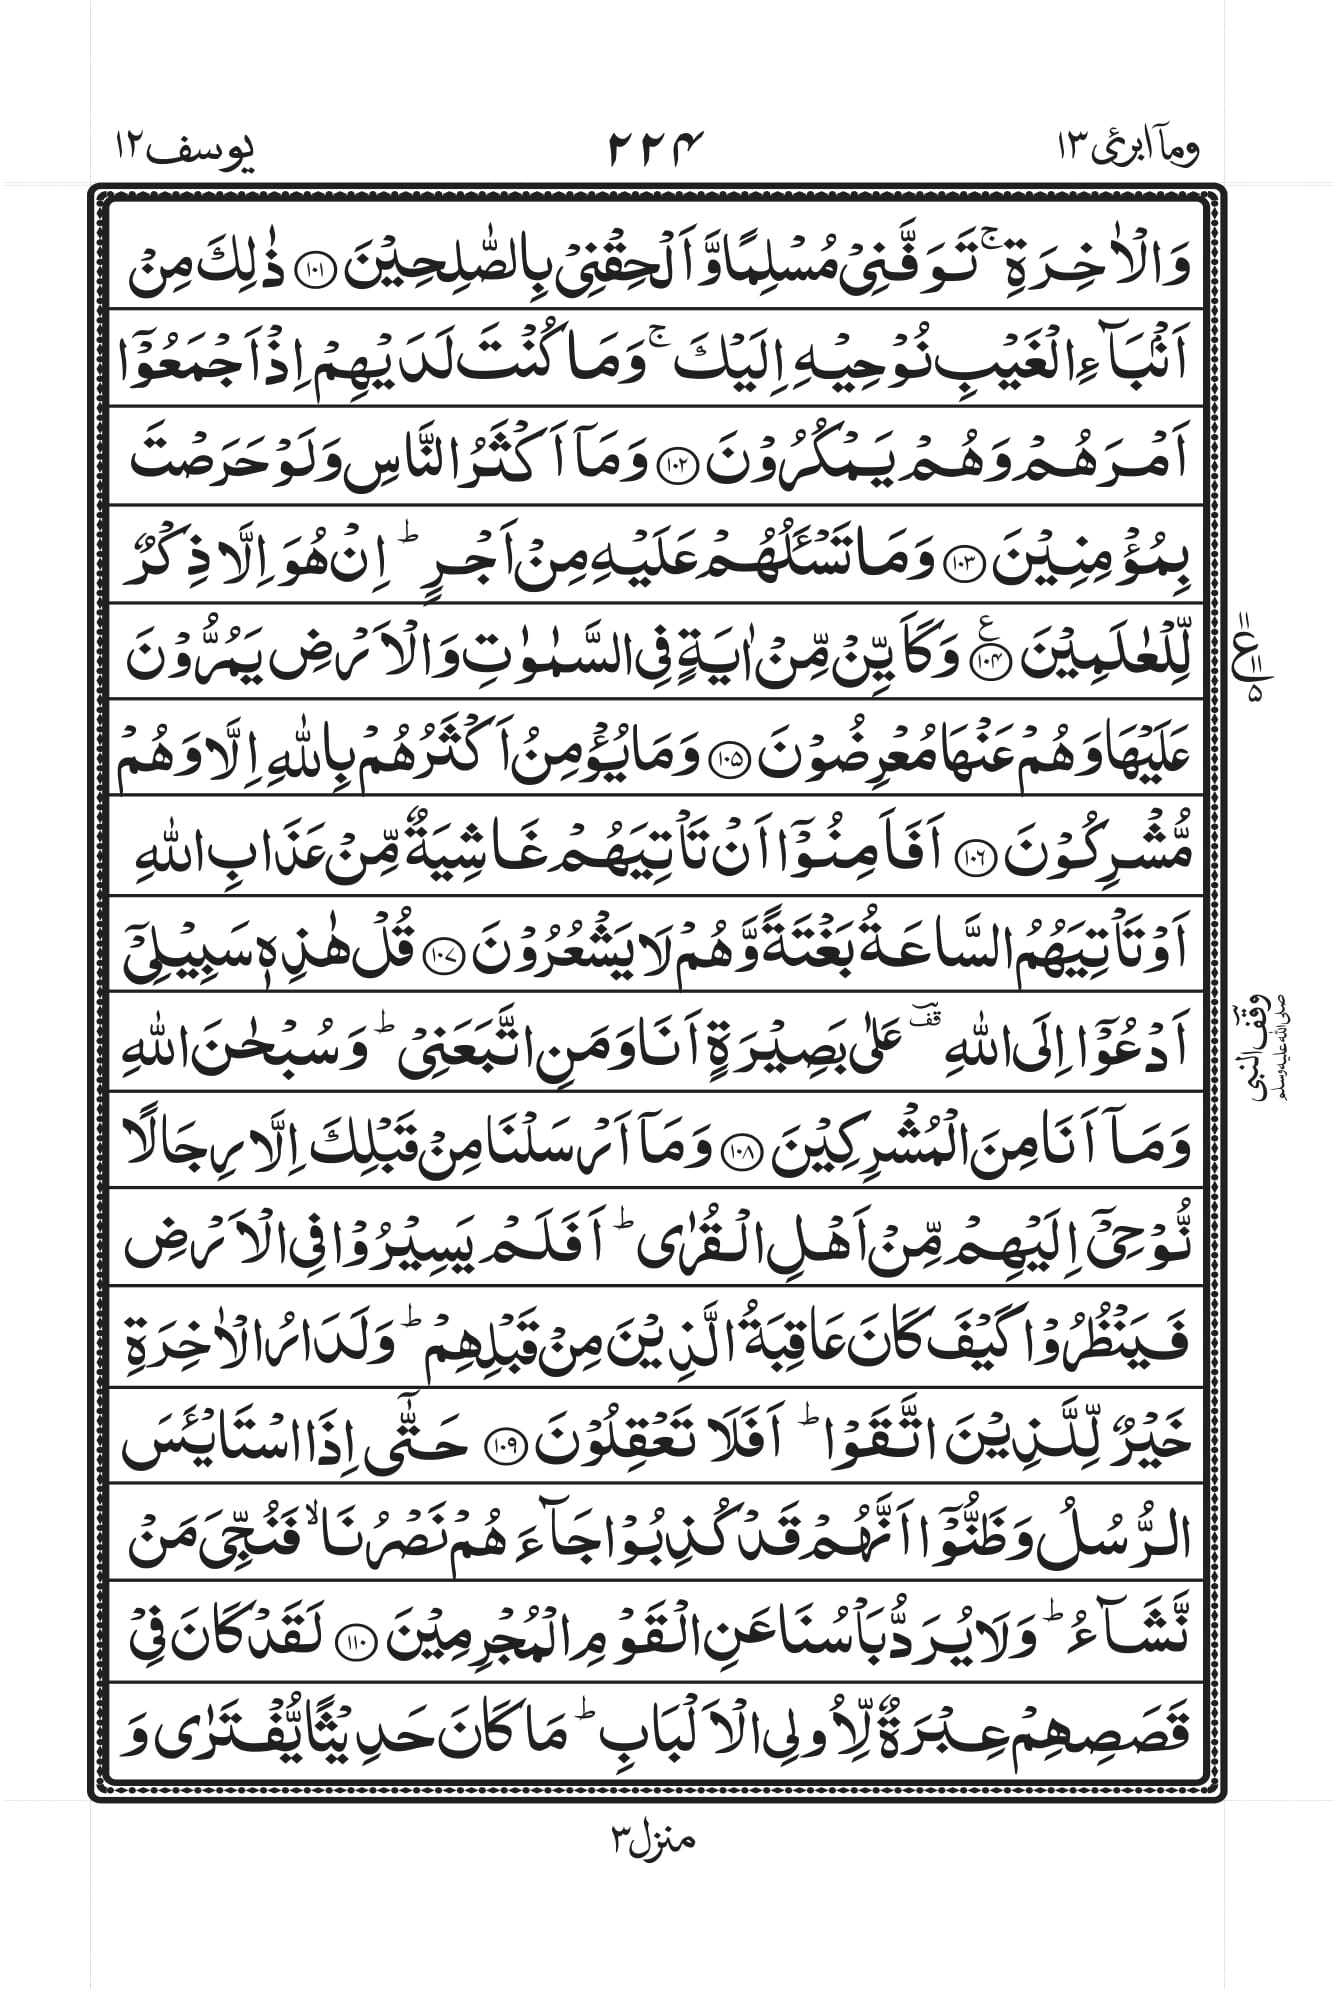 ومآ ابرئ ١٣ ٢٢٤ يوسف ١٢
وَالۡاٰخِرَةِ ۚ تَوَفَّنِىۡ مُسۡلِمًا وَّاَلۡحِقۡنِىۡ بِالصّٰلِحِيۡنَ ﴿۱۰۱﴾ ذٰلِكَ مِنۡ
اَنۡۢبَآءِ الۡغَيۡبِ نُوۡحِيۡهِ اِلَيۡكَ ۚ وَمَا كُنۡتَ لَدَيۡهِمۡ اِذۡ اَجۡمَعُوۡۤا
اَمۡرَهُمۡ وَهُمۡ يَمۡكُرُوۡنَ ﴿۱۰۲﴾ وَمَاۤ اَكۡثَرُ النَّاسِ وَلَوۡ حَرَصۡتَ
بِمُؤۡمِنِيۡنَ ﴿۱۰۳﴾ وَمَا تَسۡـَٔلُهُمۡ عَلَيۡهِ مِنۡ اَجۡرٍ ؕ اِنۡ هُوَ اِلَّا ذِكۡرٌ
لِّلۡعٰلَمِيۡنَ ﴿۱۰۴﴾ ع وَكَاَيِّنۡ مِّنۡ اٰيَةٍ فِى السَّمٰوٰتِ وَالۡاَرۡضِ يَمُرُّوۡنَ
۱۱ ع ۱۱ ۵
عَلَيۡهَا وَهُمۡ عَنۡهَا مُعۡرِضُوۡنَ ﴿۱۰۵﴾ وَمَا يُؤۡمِنُ اَكۡثَرُهُمۡ بِاللّٰهِ اِلَّا وَهُمۡ
مُّشۡرِكُوۡنَ ﴿۱۰۶﴾ اَفَاَمِنُوۡۤا اَنۡ تَاۡتِيَهُمۡ غَاشِيَةٌ مِّنۡ عَذَابِ اللّٰهِ
اَوۡ تَاۡتِيَهُمُ السَّاعَةُ بَغۡتَةً وَّهُمۡ لَا يَشۡعُرُوۡنَ ﴿۱۰۷﴾ قُلۡ هٰذِهٖ سَبِيۡلِىۡۤ
اَدۡعُوۡۤا اِلَى اللّٰهِ ؔقف عَلٰى بَصِيۡرَةٍ اَنَا وَمَنِ اتَّبَعَنِىۡ ؕ وَسُبۡحٰنَ اللّٰهِ
وقف النبى صلى الله عليه وسلم
وَمَاۤ اَنَا مِنَ الۡمُشۡرِكِيۡنَ ﴿۱۰۸﴾ وَمَاۤ اَرۡسَلۡنَا مِنۡ قَبۡلِكَ اِلَّا رِجَالًا
نُّوۡحِىۡۤ اِلَيۡهِمۡ مِّنۡ اَهۡلِ الۡقُرٰى ؕ اَفَلَمۡ يَسِيۡرُوۡا فِى الۡاَرۡضِ
فَيَنۡظُرُوۡا كَيۡفَ كَانَ عَاقِبَةُ الَّذِيۡنَ مِنۡ قَبۡلِهِمۡ ؕ وَلَدَارُ الۡاٰخِرَةِ
خَيۡرٌ لِّلَّذِيۡنَ اتَّقَوۡا ؕ اَفَلَا تَعۡقِلُوۡنَ ﴿۱۰۹﴾ حَتّٰۤى اِذَا اسۡتَايۡـَٔسَ
الرُّسُلُ وَظَنُّوۡۤا اَنَّهُمۡ قَدۡ كُذِبُوۡا جَآءَهُمۡ نَصۡرُنَا ۙ فَنُجِّىَ مَنۡ
نَّشَآءُ ؕ وَلَا يُرَدُّ بَاۡسُنَا عَنِ الۡقَوۡمِ الۡمُجۡرِمِيۡنَ ﴿۱۱۰﴾ لَقَدۡ كَانَ فِىۡ
قَصَصِهِمۡ عِبۡرَةٌ لِّاُولِى الۡاَلۡبَابِ ؕ مَا كَانَ حَدِيۡثًا يُّفۡتَرٰى وَ
منزل ٣